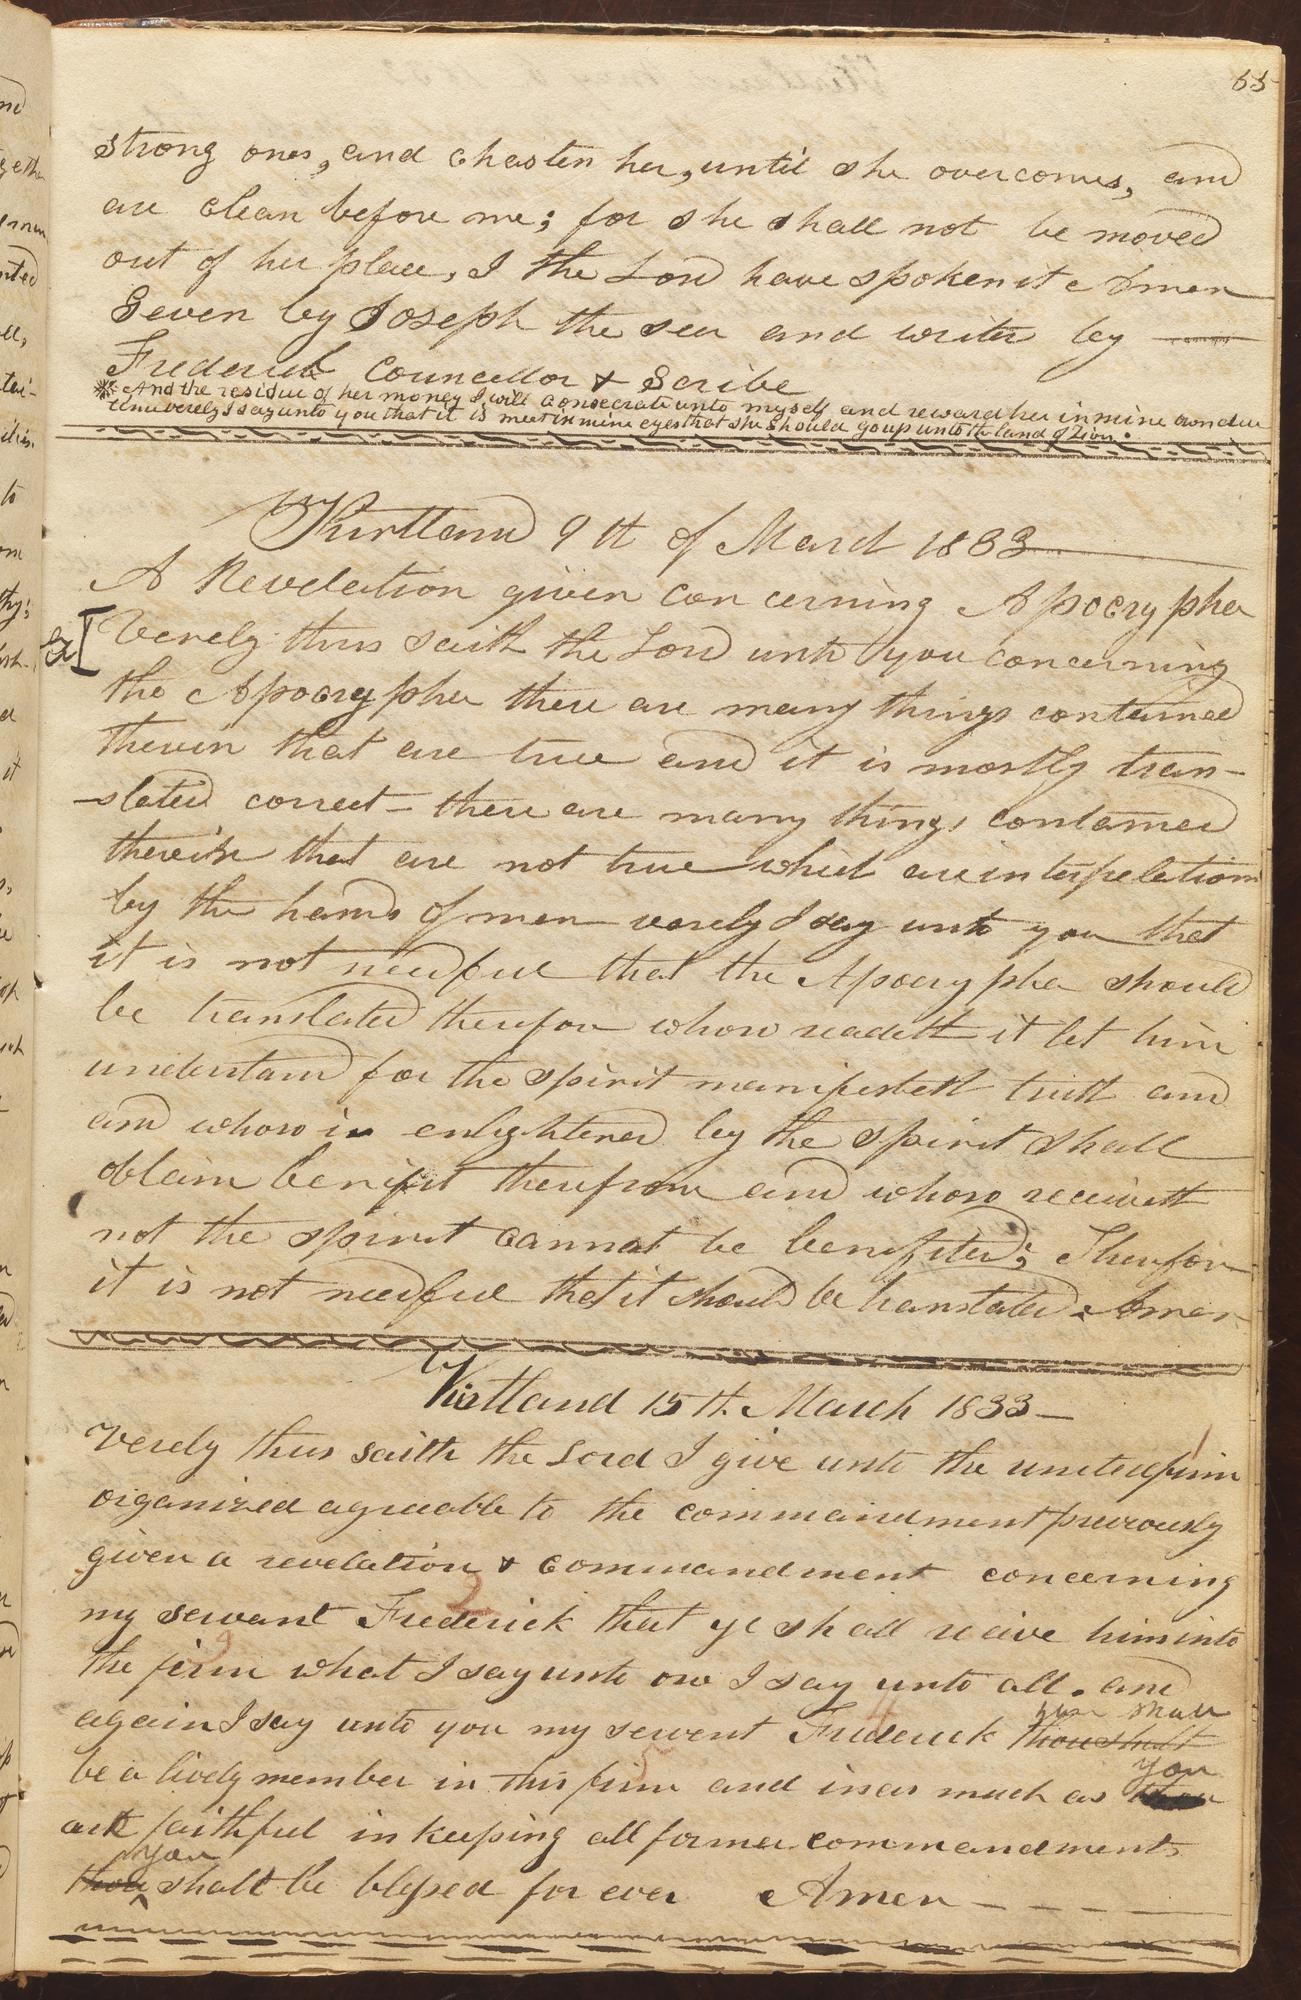 55
strong ones, and chasten her, until she overcomes, and
are clean before me; for she shall not be moved
out of her place, I the Lord have spoken it Amen
Given by Joseph the seer and writen by
Frederick Councellor & Scribe
* And the residue of her money I will consecrate unto myself and reward her in mine own due
time verely I say unto you that it is meet in mine eyes that she should go up unto the land of Zion.
Kirtland 9th of March 1833
A Revelation given concerning Apocrypha
Verely thus saith the Lord unto you concerning
the Apocrypha there are many things contained
therein that are true and it is mostly tran-
-slated correct- there are many things contained
therein that are not true which are interpelations
by the hands of men verely I say unto you that
it is not needful that the Apocrypha should
be translated therefore whoso readeth it let him
understand for the spirit manifesteth truth and
and whoso is enlightened by the spirit shall
obtain benifit therefrom and whoso receiveth
not the spirit cannot be benefited; Therefore
it is not needful that it should be translated. Amen
Kirtland 15th. March 1833-
Verely thus saith the Lord I give unto the united firm
organized agreeable to the commandment previously
given a revelation & commandment concerning
my servant Frederick that ye shall receive him into
the firm what I say unto one I say unto all. and
again I say unto you my servent Frederick thou shalt you shall
be a lively member in this firm and inas much as you
art faithful in keeping all former commandments
thou you shall be blessed for ever Amen